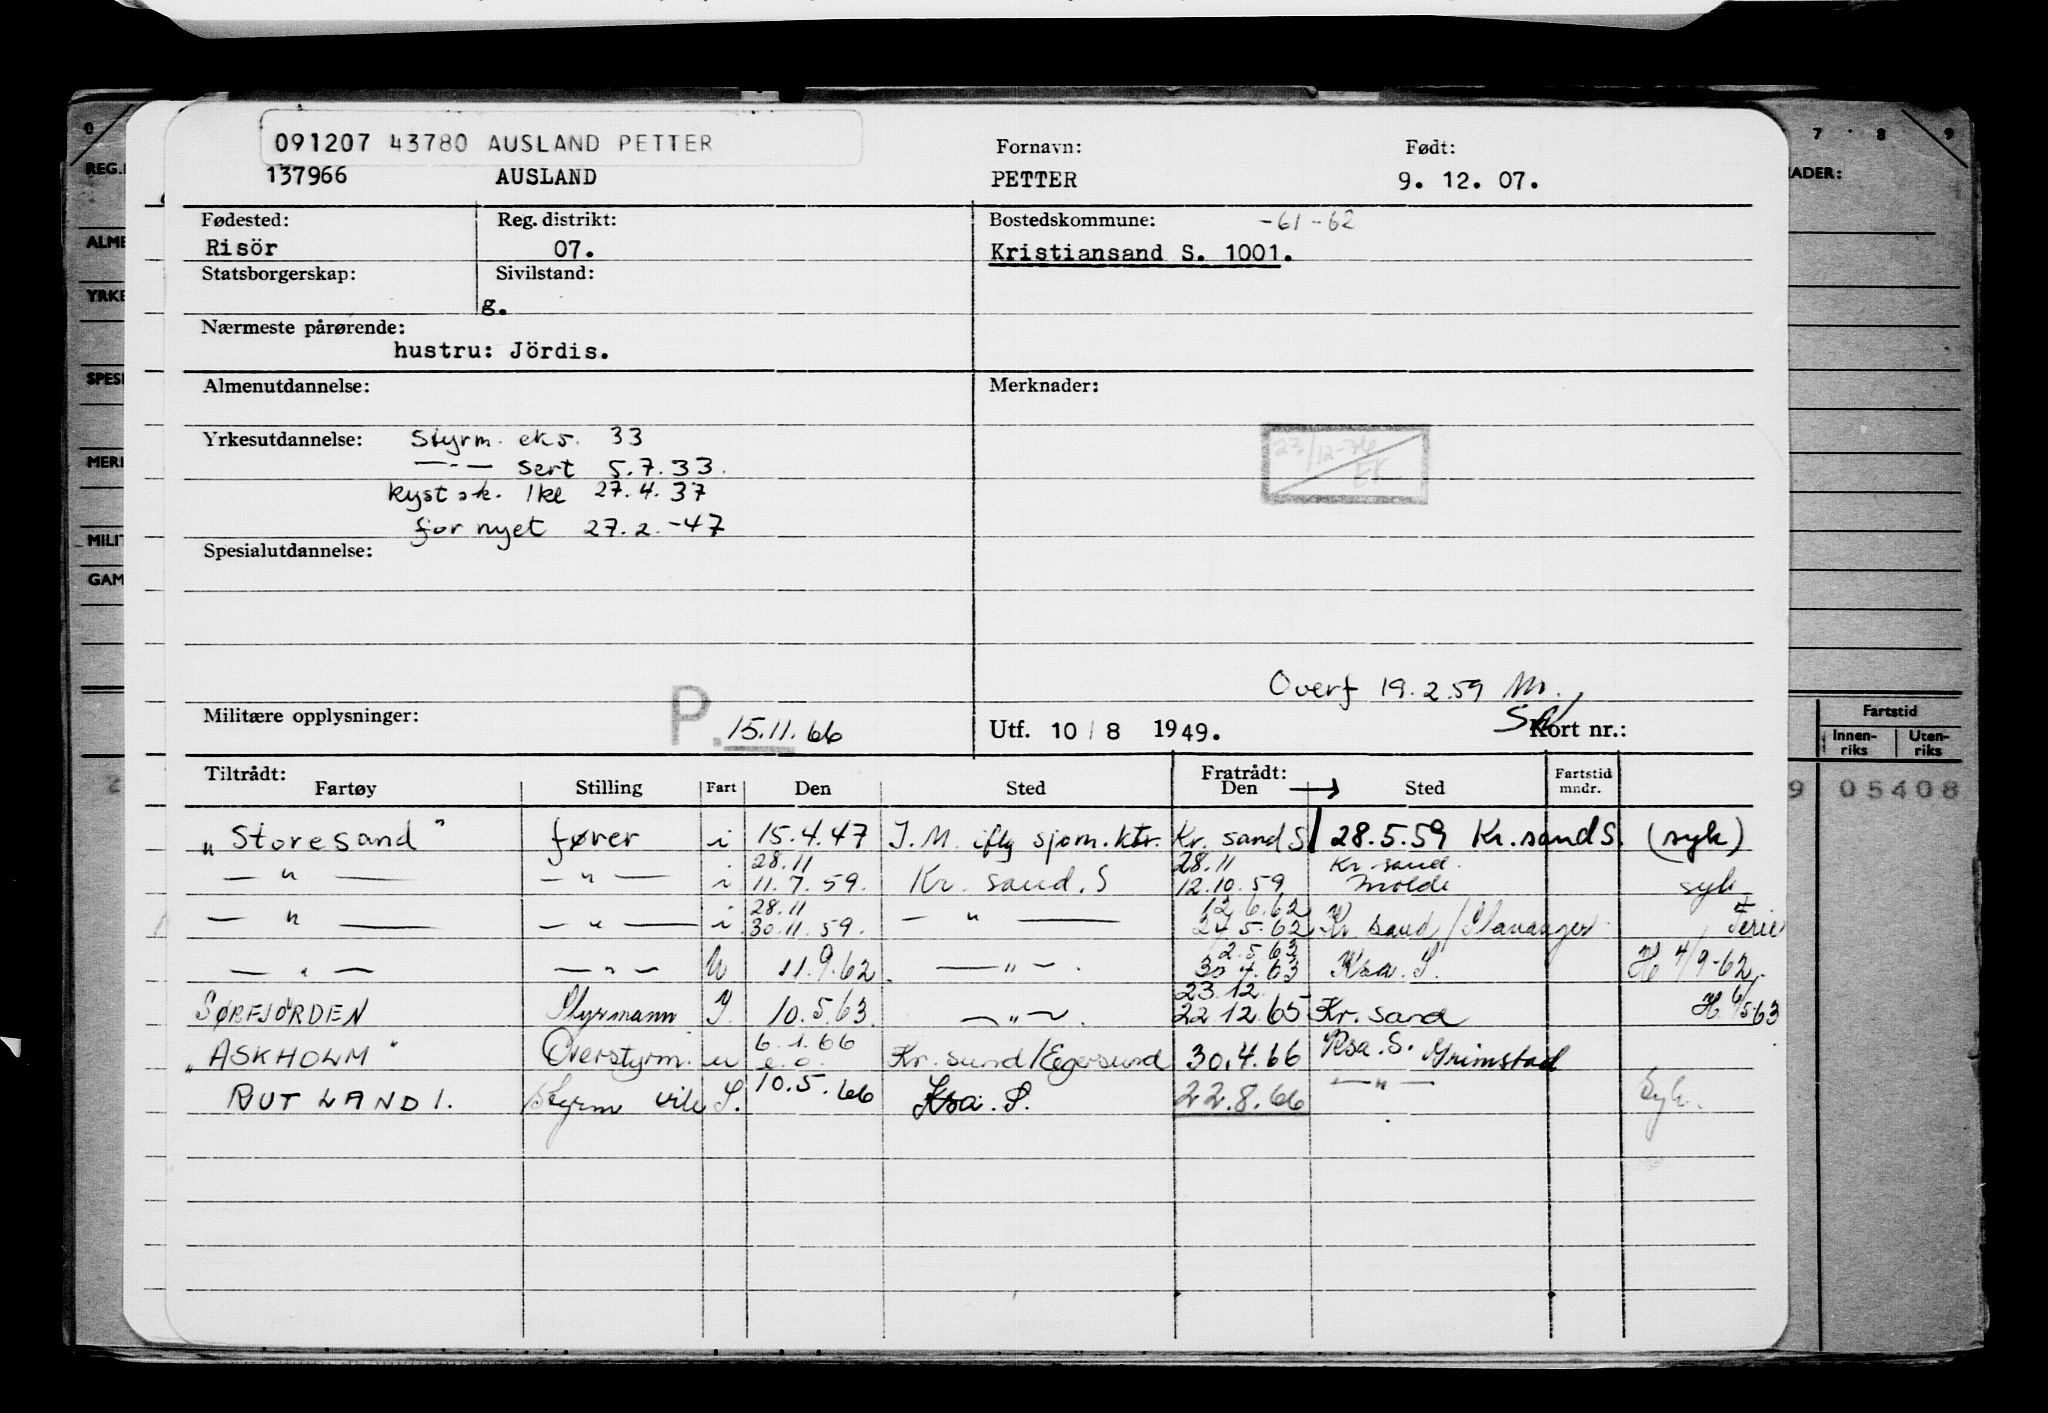 0 7 8 9
091207 43780 AUSLAND PETTER
Fornavn: Født:
137966 AUSLAND PETTER 9. 12. 07.
Fødested: Reg. distrikt: Bostedskommune: -61-62
Risör 07. Kristiansand S. 1001.
Statsborgerskap: Sivilstand:
g.
Nærmeste pårørende:
hustru: Jördis.
Almenutdannelse: Merknader:
Yrkesutdannelse: Styrm. eks. 33
—"— sert 5.7.33.
kystsk. 1kl 27.4.37
fornyet 27.2.-47
Spesialutdannelse:
23/12-76
EK
Overf 19.2.59
Militære opplysninger: P. 15.11.66 Utf. 10/8 1949. Kort nr.:
Fartstid
Innen-riks Uten-riks
9 05408
Tiltrådt: Fratrådt: Fartstid
Fartøy Stilling Fart Den Sted Den → Sted mndr.
"Storesand" fører i 15.4.47 I.M. iflg sjøm.ktr. Kr. sand S 28.5.59 Kr. sand S. (syk)
28.11 28.11 Kr. sand.
—"— —"— i 11.7.59. Kr. sand. S 12.10.59 Molde syk
28.11 12.6.62
—"— —"— i 30.11.59. —"— 24.5.62 Kr sand/Stavanger Ferie
2.5.63
—"— —"— U 11.9.62. —"— 30.4.63 Ksa. S. H 4/9-62
23.12.
SØRFJORDEN Styrmann I. 10.5.63. —"— 22.12.65 Kr. sand H 6/5 63
6.1.66
"ASKHOLM" Overstyrm. u Kr. sund/Egersund 30.4.66 Ksa. S. Grimstad
RUTLAND I. Styrm vik S. 10.5.66 Ksa. S. 22.8.66 —"— Syk.